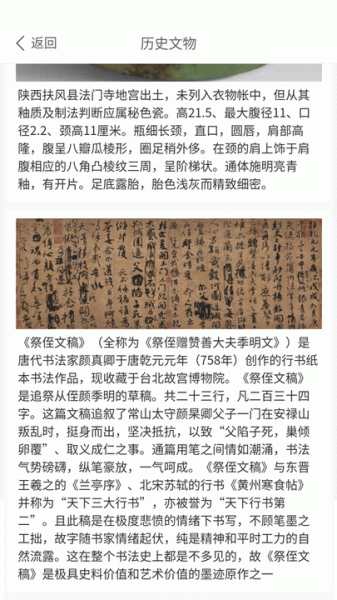 返回
历史文物
陕西扶风县法门寺地宫出土，未列入衣物帐中，但从其
釉质及制法判断应属秘色瓷。高21.5、最大腹径11、口
径2.2、颈高11厘米。瓶细长颈，直口，圆唇，肩部高
隆，腹呈八瓣瓜棱形，圈足稍外侈。在颈的肩上饰于肩
腹相应的八角凸棱纹三周，呈阶梯状。通体施明亮青
釉，有开片。足底露胎，胎色浅灰而精致细密。
《祭侄文稿》（全称为《祭侄赠赞善大夫季明文》）是
唐代书法家颜真卿于唐乾元元年（758年）创作的行书纸
本书法作品，现收藏于台北故宫博物院。《祭侄文稿》
是追祭从侄颜季明的草稿。共二十三行，凡二百三十四
字。这篇文稿追叙了常山太守颜杲卿父子一门在安禄山
叛乱时，挺身而出，坚决抵抗，以致“父陷子死，巢倾
卵覆”、取义成仁之事。通篇用笔之间情如潮涌，书法
气势磅礴，纵笔豪放，一气呵成。《祭侄文稿》与东晋
王羲之的《兰亭序》、北宋苏轼的行书《黄州寒食帖》
并称为“天下三大行书”，亦被誉为“天下行书第
二”。且此稿是在极度悲愤的情绪下书写，不顾笔墨之
工拙，故字随书家情绪起伏，纯是精神和平时工力的自
然流露。这在整个书法史上都是不多见的，故《祭侄文
稿》是极具史料价值和艺术价值的墨迹原作之一